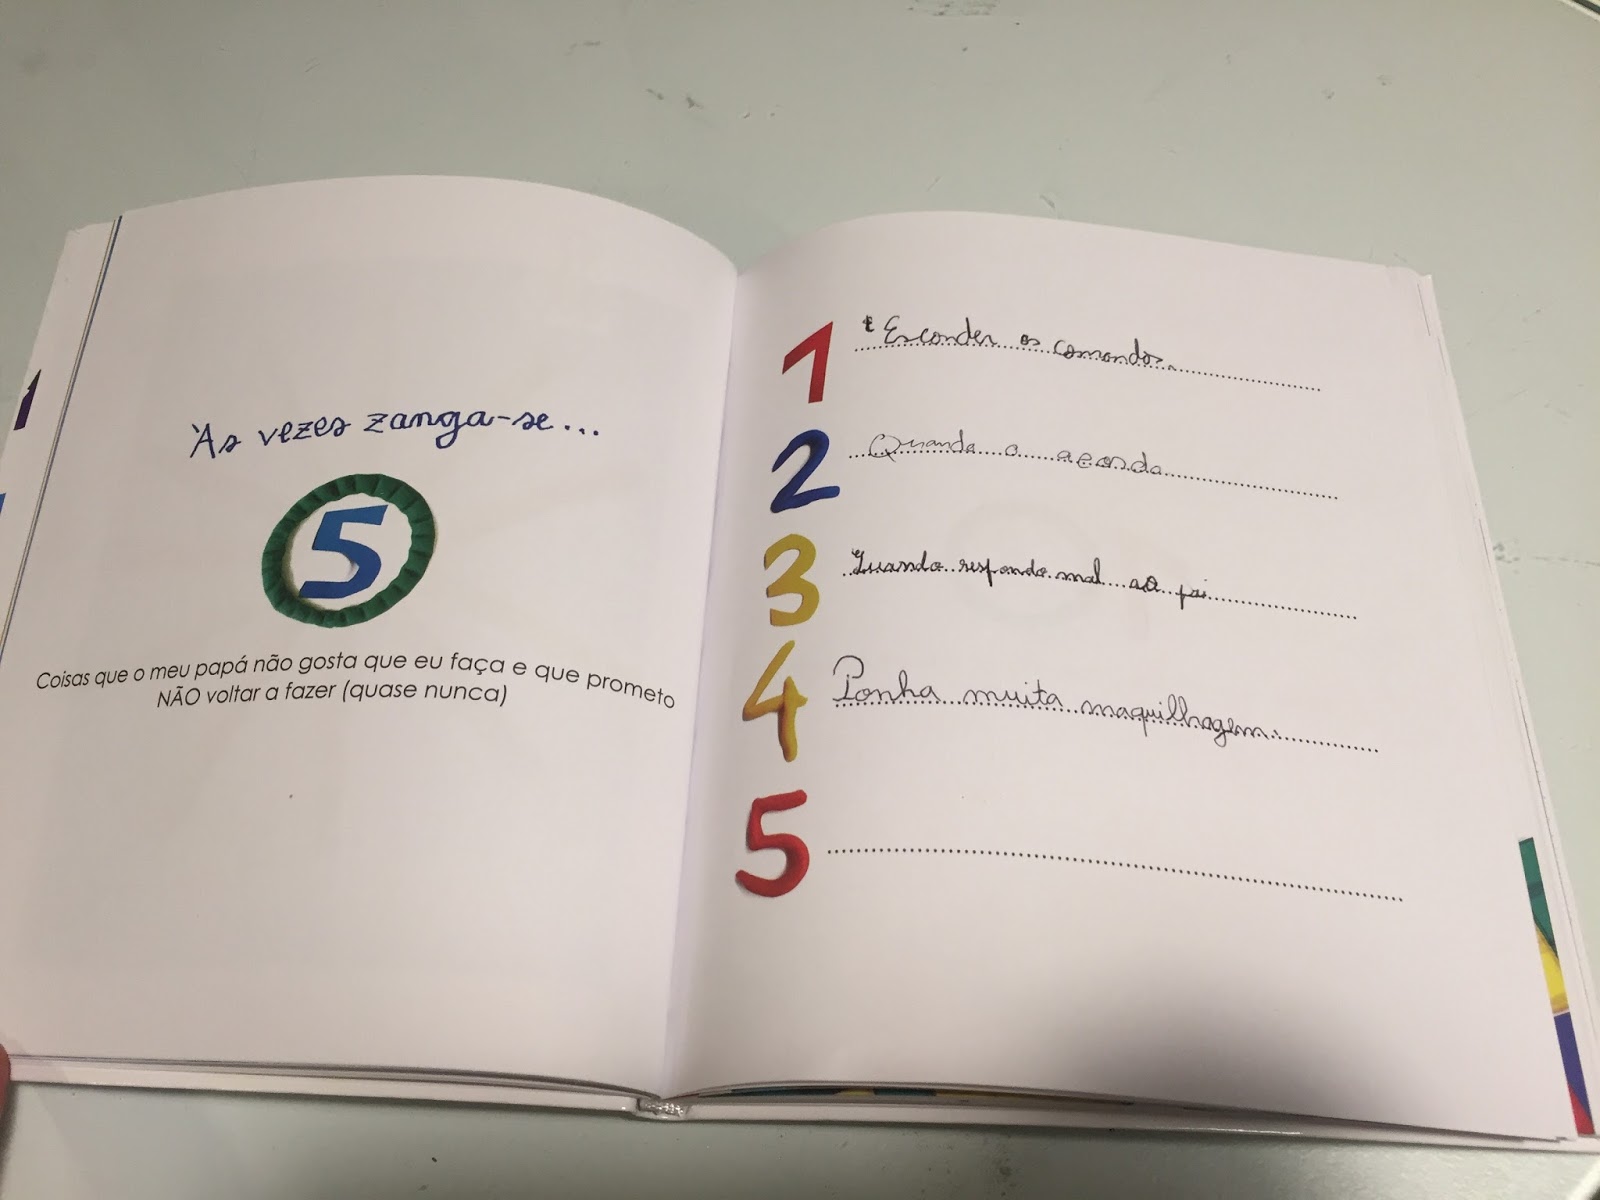 Às vezes zanga-se...
5
Coisas que o meu papá não gosta que eu faça e que prometo
NÃO voltar a fazer (quase nunca)
1 Esconder os comandos.
2 Quando o acordo
3 Quando respondo mal ao pai
4 Ponha muita maquilhagem.
5